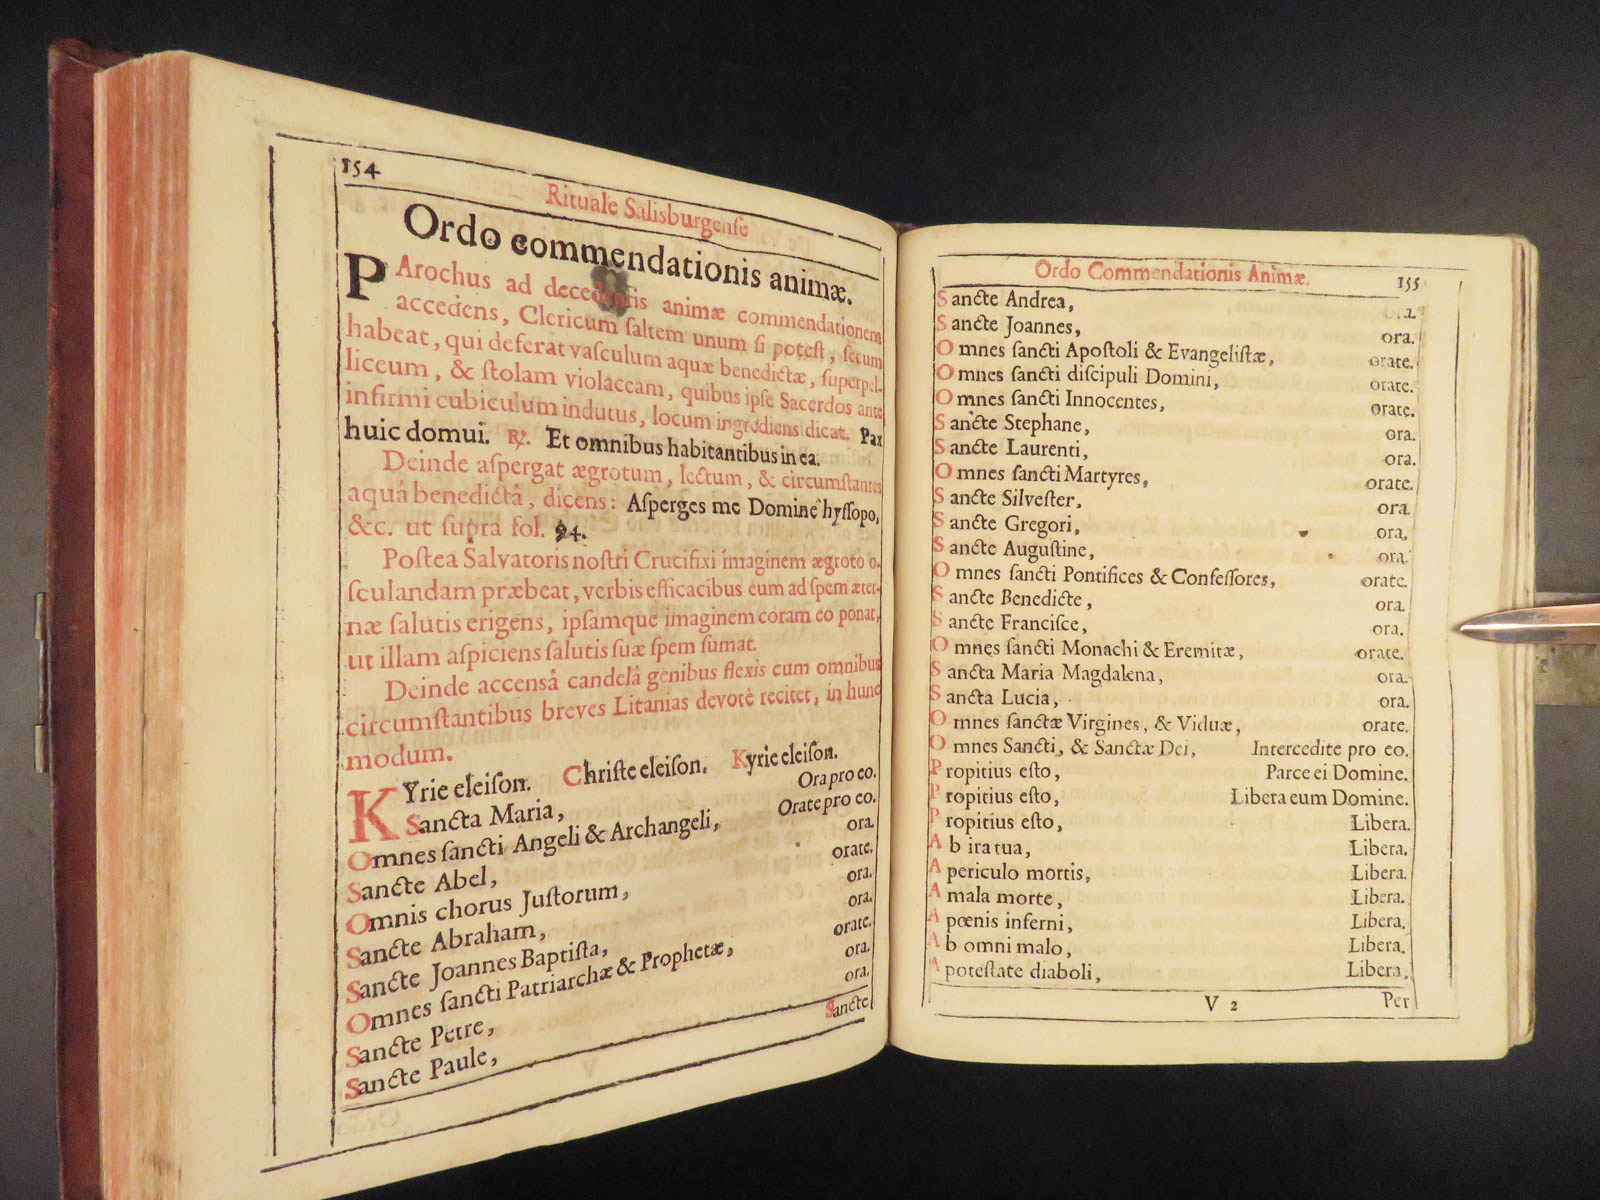 154
Rituale Saliſburgenſe
Ordo commendationis animæ.
PArochus ad decedentis animæ commendationem
accedens, Clericum ſaltem unum ſi poteſt, ſecum
habeat, qui deferat vaſculum aquæ benedictæ, ſuperpel-
liceum, & ſtolam violaceam, quibus ipſe Sacerdos ante
infirmi cubiculum indutus, locum ingrediens dicat. Pax
huic domui. ℟. Et omnibus habitantibus in ea.
Deinde aſpergat ægrotum, lectum, & circumſtantes
aquâ benedictâ, dicens: Aſperges me Domine hyſſopo,
&c. ut ſupra fol. 94.
Poſtea Salvatoris noſtri Crucifixi imaginem ægroto o-
ſculandam præbeat, verbis efficacibus eum ad ſpem æter-
næ ſalutis erigens, ipſamque imaginem coram eo ponat,
ut illam aſpiciens ſalutis ſuæ ſpem ſumat.
Deinde accensâ candelâ genibus flexis cum omnibus
circumſtantibus breves Litanias devotè recitet, in hunc
modum.
KYrie eleiſon. Chriſte eleiſon. Kyrie eleiſon.
Sancta Maria, Ora pro eo.
Omnes ſancti Angeli & Archangeli, Orate pro eo.
Sancte Abel, ora.
Omnis chorus Juſtorum, orate.
Sancte Abraham, ora.
Sancte Joannes Baptiſta, ora.
Omnes ſancti Patriarchæ & Prophetæ, orate.
Sancte Petre, ora.
Sancte Paule, ora.
Sancte
Ordo Commendationis Animæ. 155
Sancte Andrea, ora.
Sancte Joannes, ora.
Omnes ſancti Apoſtoli & Evangeliſtæ, orate.
Omnes ſancti diſcipuli Domini, orate.
Omnes ſancti Innocentes, orate.
Sancte Stephane, ora.
Sancte Laurenti, ora.
Omnes ſancti Martyres, orate.
Sancte Silveſter, ora.
Sancte Gregori, ora,
Sancte Auguſtine, ora.
Omnes ſancti Pontifices & Confeſſores, orate.
Sancte Benedicte, ora.
Sancte Franciſce, ora.
Omnes ſancti Monachi & Eremitæ, orate.
Sancta Maria Magdalena, ora.
Sancta Lucia, ora.
Omnes ſanctæ Virgines, & Viduæ, orate.
Omnes Sancti, & Sanctæ Dei, Intercedite pro eo.
Propitius eſto, Parce ei Domine.
Propitius eſto, Libera eum Domine.
Propitius eſto, Libera.
Ab ira tua, Libera.
A periculo mortis, Libera.
A mala morte, Libera.
A pœnis inferni, Libera.
Ab omni malo, Libera.
A poteſtate diaboli, Libera.
V 2 Per